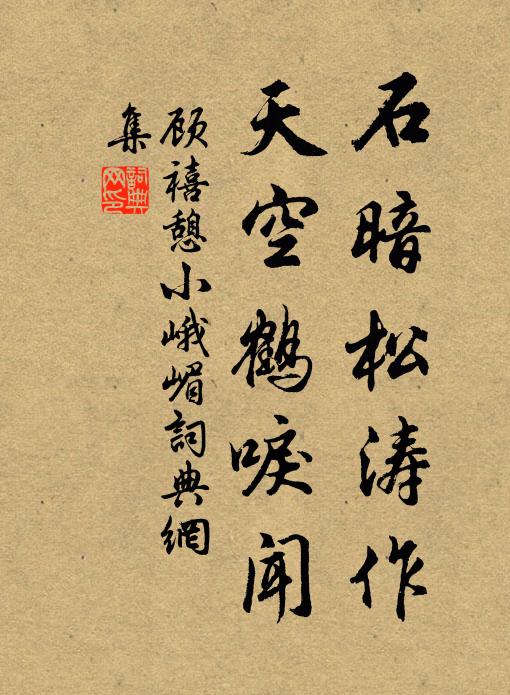 石暗松涛作
天空鹤唳闻
顾禧憩小峨嵋詞典網
集
詞典
网印